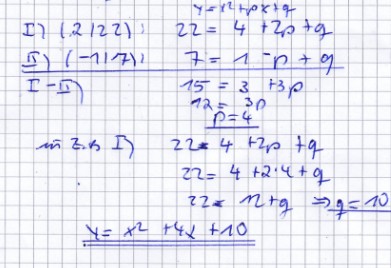 y=x²+px+q
I) (2122) 22 = 4 +2p +q
II) (-1|7) 7 = 1 -p + q
I-II) 15 = 3 +3p
12 = 3p
p=4
in z.B I) 22= 4 +2p +q
22 = 4 +2·4 +q
22= 12+q ⇒ q=10
y= x² +4x +10